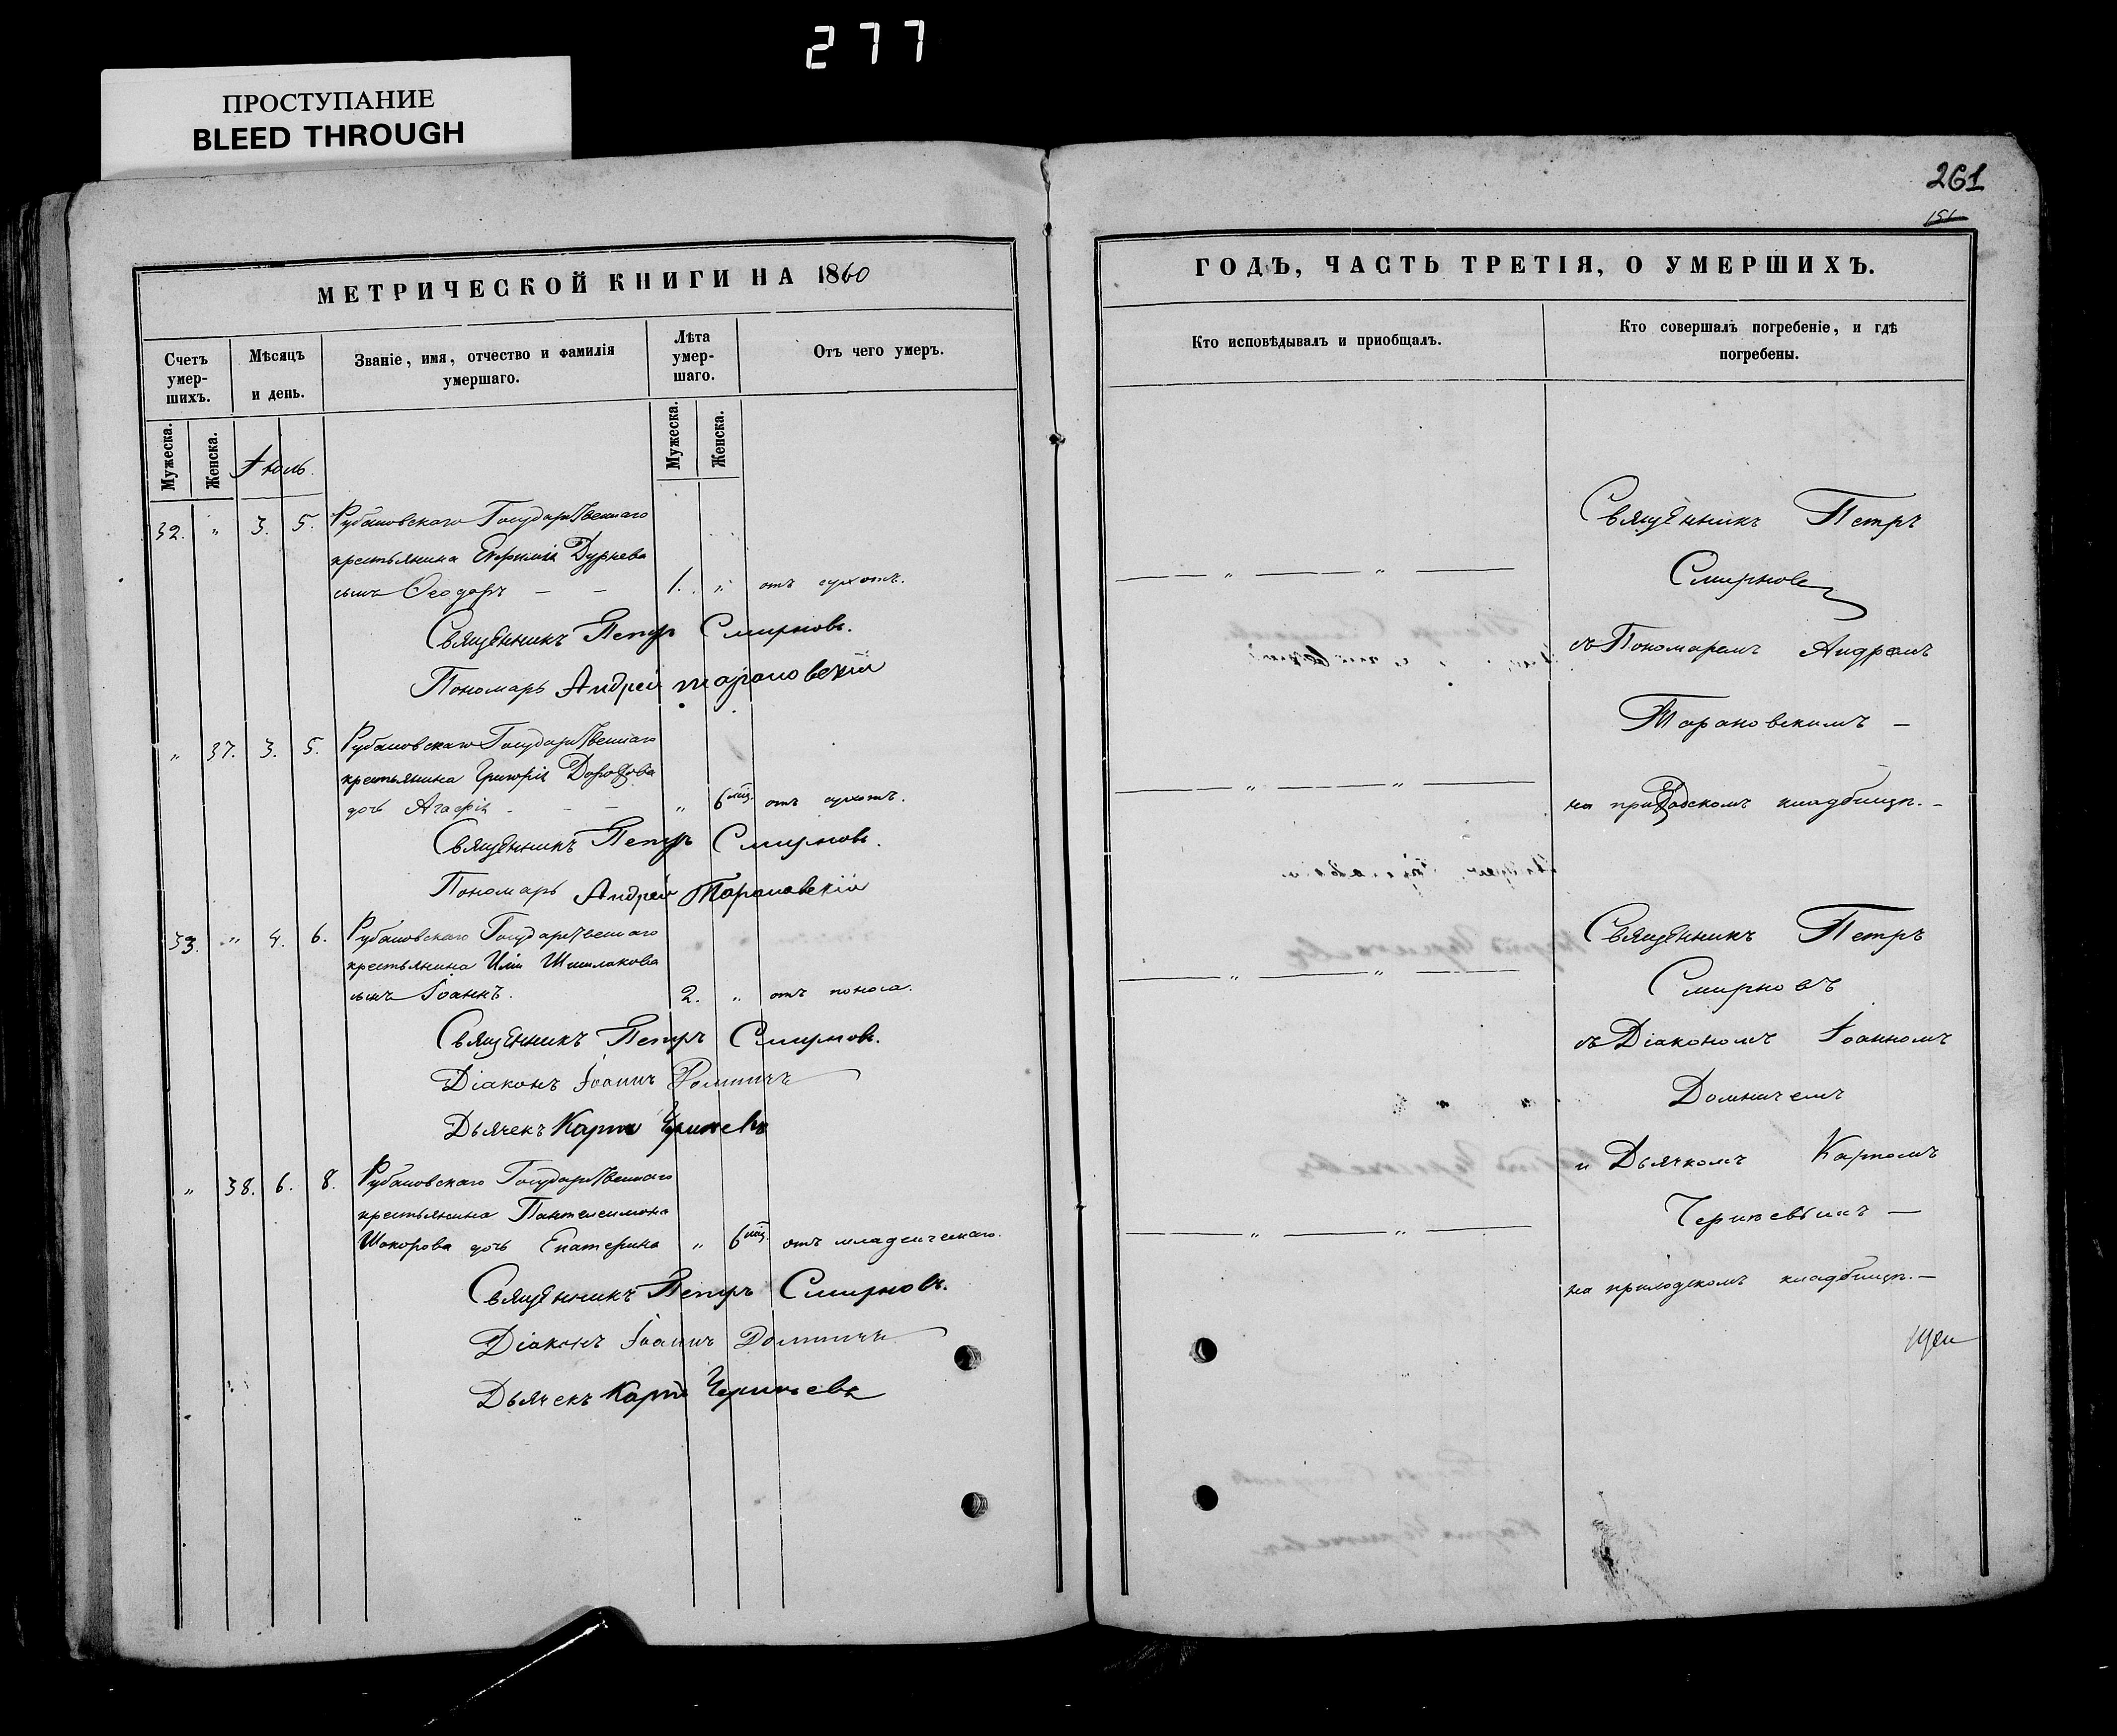 277
ПРОСТУПАНИЕ
BLEED THROUGH
261
151
МЕТРИЧЕСКОЙ КНИГИ НА 1860
Счетъ умер-шихъ.
Мѣсяцъ и день.
Званіе, имя, отчество и фамилія умершаго.
Лѣта умер-шаго.
Отъ чего умеръ.
Мужеска.
Женска.
Іюль.
Мужеска.
Женска.
32. " 3. 5. Рубановскаго Государственнаго
крестьянина Евфимія Дурнева
сынъ Ѳеодоръ — — 1. " отъ сухотъ.
Священникъ Петръ Смирновъ.
Пономарь Андрей Тарановскій
" 37. 3. 5. Рубановскаго Государственнаго
крестьянина Григорія
дочь Агафія — — " 6 мѣс. отъ сухотъ.
Священникъ Петръ Смирновъ.
Пономарь Андрей Тарановскій
33. " 4. 6. Рубановскаго Государственнаго
крестьянина Иліи
сынъ Іоаннъ. 2. " отъ поноса.
Священникъ Петръ Смирновъ.
Діаконъ Іоаннъ Домничъ
Дьячекъ Карпъ Чериневъ
" 38. 6. 8. Рубановскаго Государственнаго
крестьянина Пантелеимона
Шокорова дочь Екатерина " 6 мѣс. отъ младенческаго.
Священникъ Петръ Смирновъ.
Діаконъ Іоаннъ Домничъ
Дьячекъ Карпъ Чериневъ
ГОДЪ, ЧАСТЬ ТРЕТІЯ, О УМЕРШИХЪ.
Кто исповѣдывалъ и пріобщалъ.
Кто совершалъ погребеніе, и гдѣ
погребены.
Священникъ Петръ
Смирновъ
съ Пономаремъ Андреемъ
Тарановскимъ —
на приходскомъ кладбищѣ. —
Священникъ Петръ
Смирновъ
съ Діакономъ Іоанномъ
Домничемъ
и Дьячкомъ Карпомъ
Чериневымъ —
на приходскомъ кладбищѣ. —